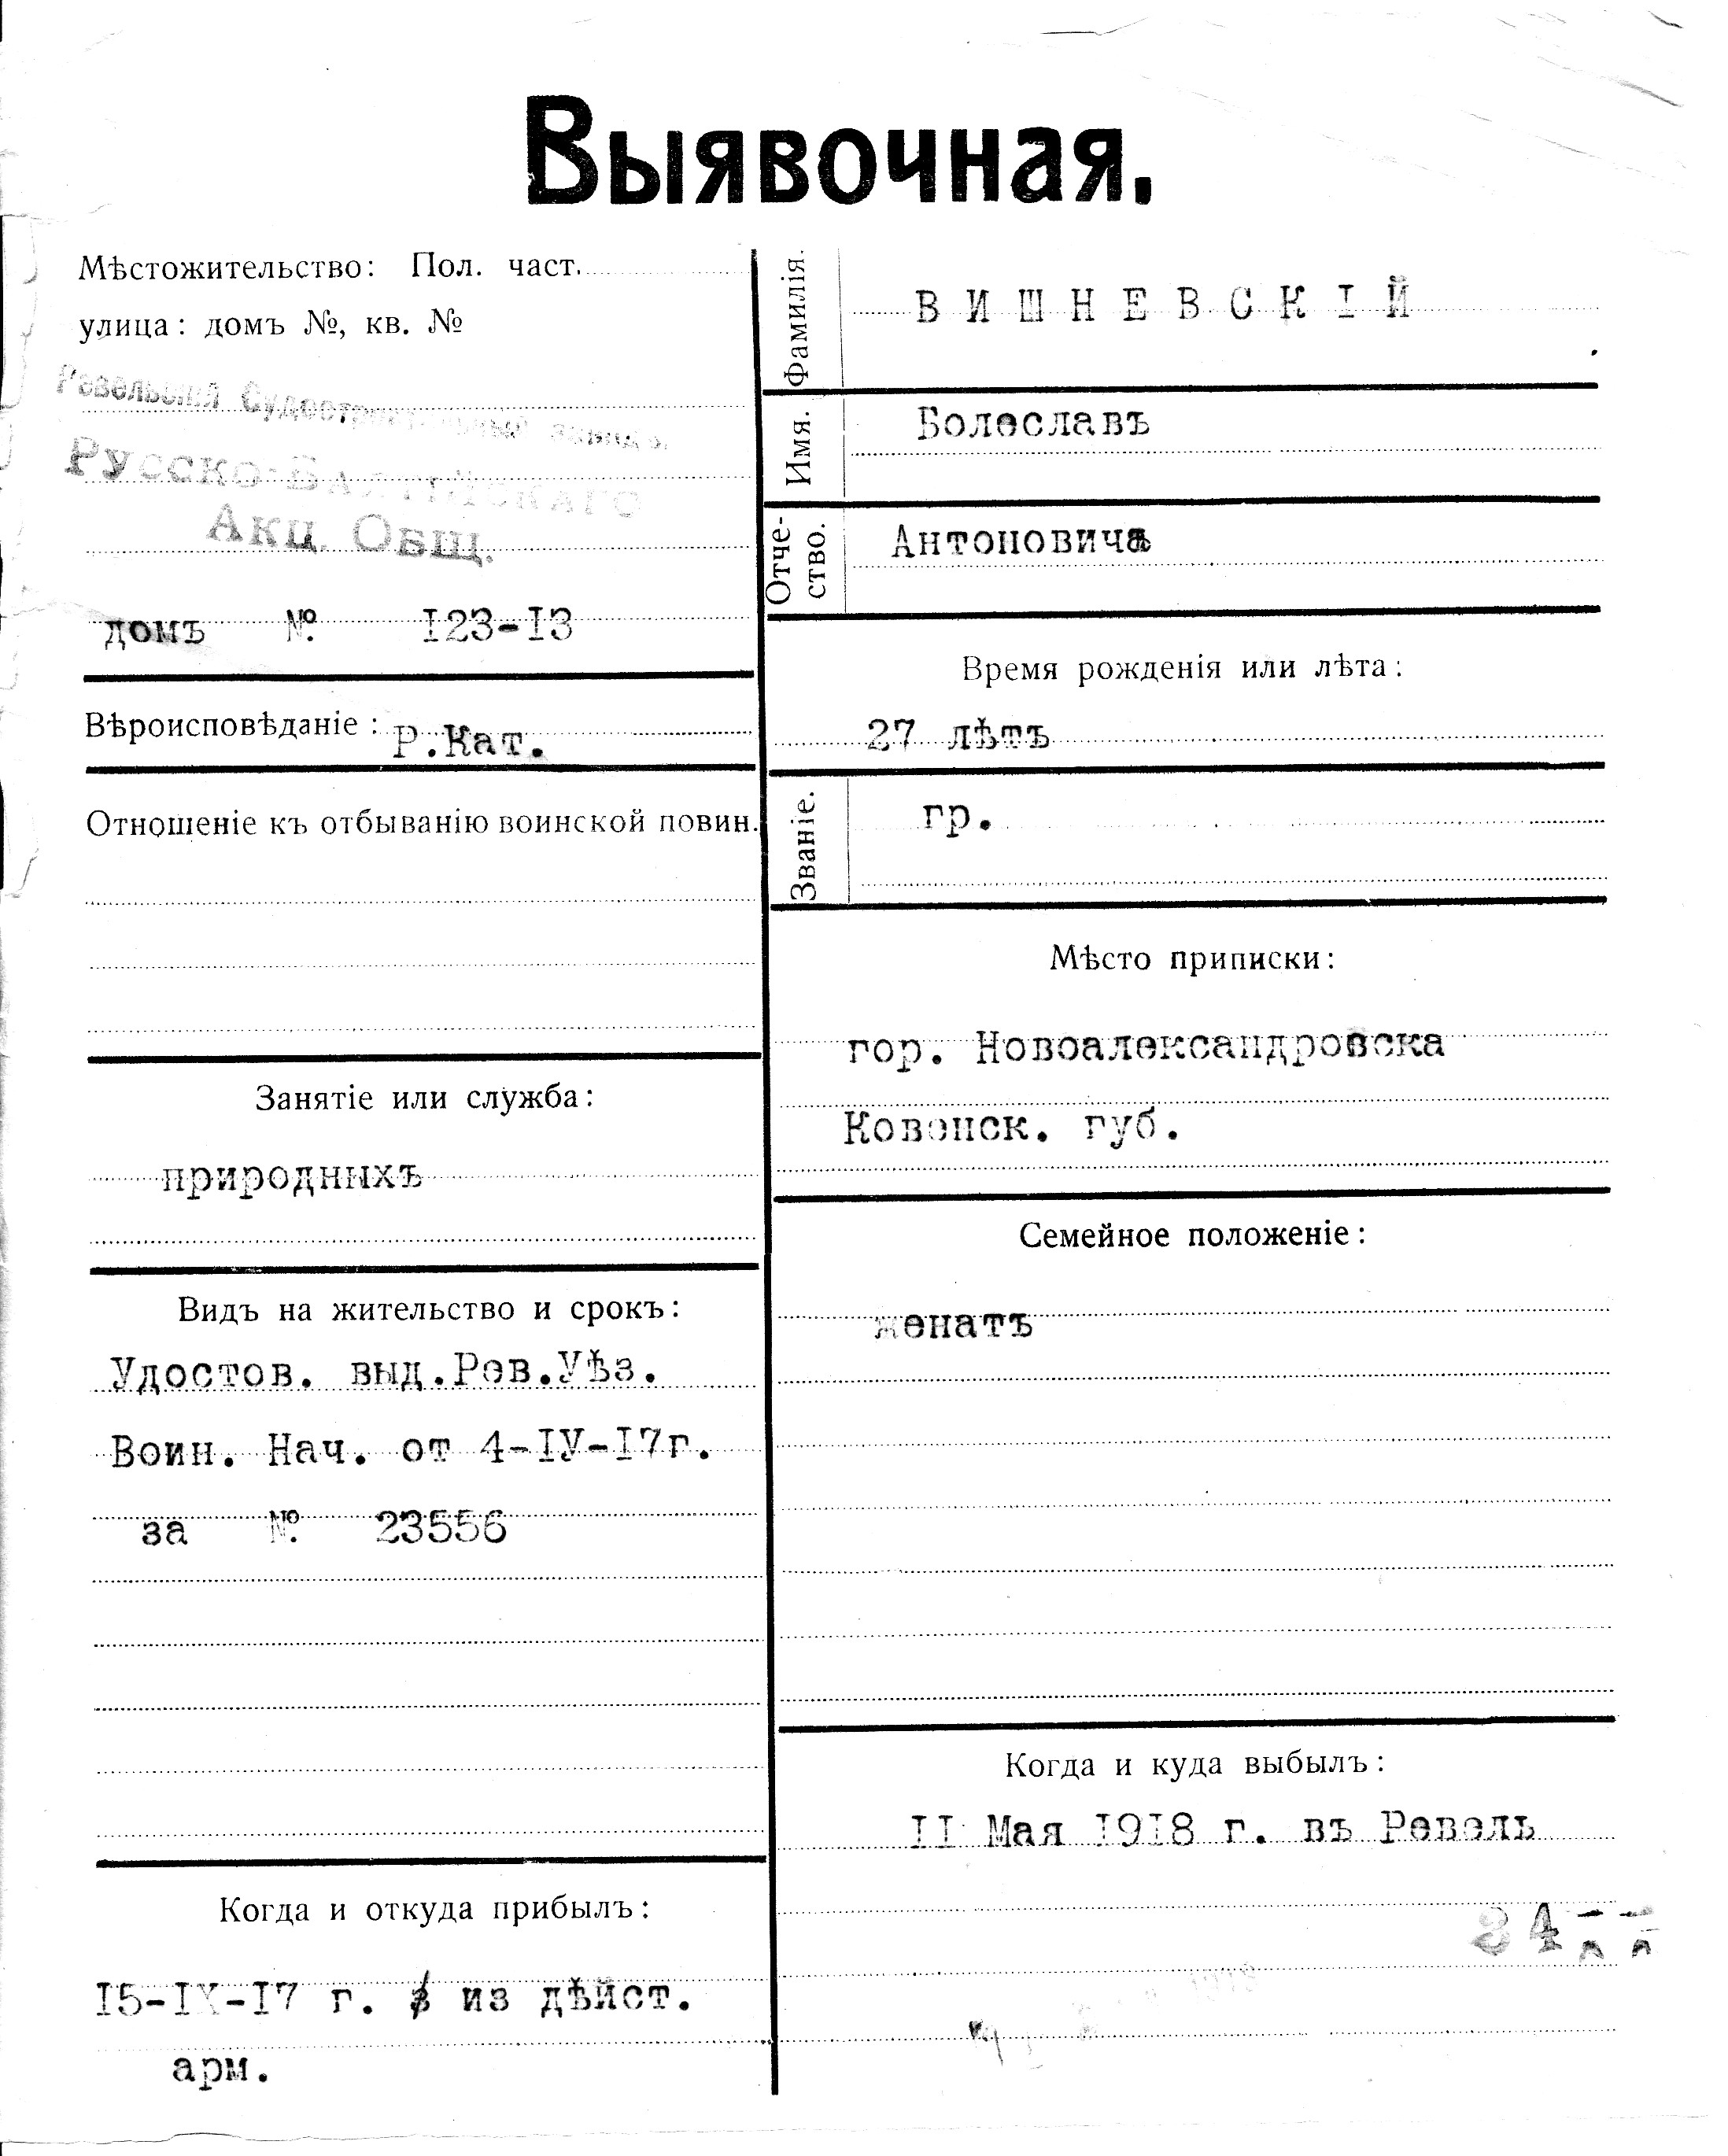 Выявочная.
Мѣстожительство: Пол. част.
улица: домъ №, кв. №
Ревельскій Судостроительный заводъ.
Русско-Балтійскаго
Акц. Общ.
домъ № I23-I3
Вѣроисповѣданіе: Р.Кат.
Отношеніе къ отбыванію воинской повин.
Занятіе или служба:
природныхъ
Видъ на жительство и срокъ:
Удостов. выд.Рев.Уѣз.
Воин. Нач. от 4-IУ-I7г.
за № 23556
Когда и откуда прибылъ:
I5-IX-I7 г. из дѣйст.
арм.
Фамилія. ВИШНЕВСКІЙ
Имя. Болеславъ
Отче-
ство. Антоновичъ
Время рожденія или лѣта:
27 лѣтъ
Званіе. гр.
Мѣсто приписки:
гор. Новоалександровска
Ковенск. губ.
Семейное положеніе:
женатъ
Когда и куда выбылъ:
II Мая I9I8 г. въ Ревель
34